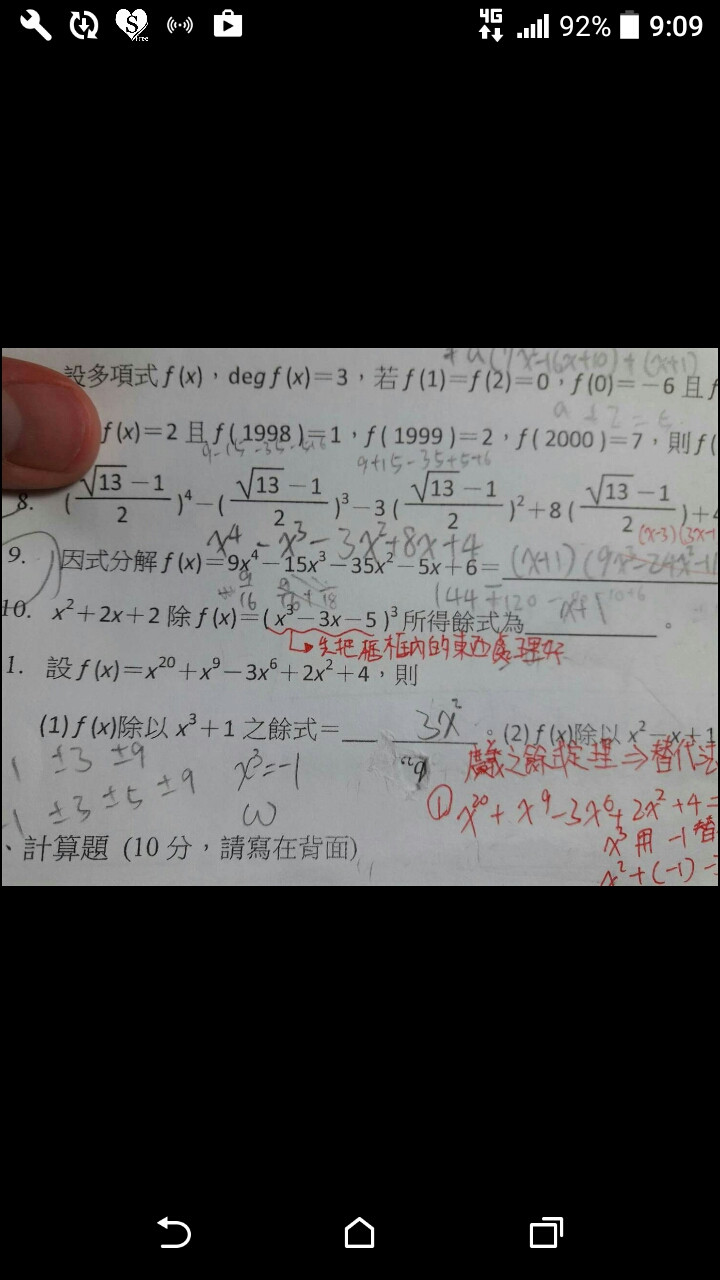 4G 92% 9:09
設多項式 f(x)，deg f(x)=3，若 f(1)=f(2)=0，f(0)=−6 且 f
f(x)=2 且 f(1998)=1，f(1999)=2，f(2000)=7，則 f(
9-15-35-5+6
9+15-35+5+6
8. (\frac{√13−1}{2})^4−(\frac{√13−1}{2})^3−3(\frac{√13−1}{2})^2+8(\frac{√13−1}{2})+4
x^4 - x^3 - 3x^2+8x+4
(x-3)(3x-1
9. 因式分解 f(x)=9x^4−15x^3−35x^2−5x+6= (x+1)(9x^3-24x^2-11
10. x^2+2x+2 除 f(x)=(x^3−3x−5)^3 所得餘式為 。
先把框框內的東西處理好
1. 設 f(x)=x^20+x^9−3x^6+2x^2+4，則
(1) f(x)除以 x^3+1 之餘式= 3x^2 。(2) f(x)除以 x^2−x+1
廣義之餘式定理⇒替代法
1 ±3 ±9
x^3=-1
±3 ±5 ±9
ω
① x^20 + x^9 -3x^6+2x^2+4=
x^3 用 -1 替
x^2+(-1)
、計算題 (10 分，請寫在背面)